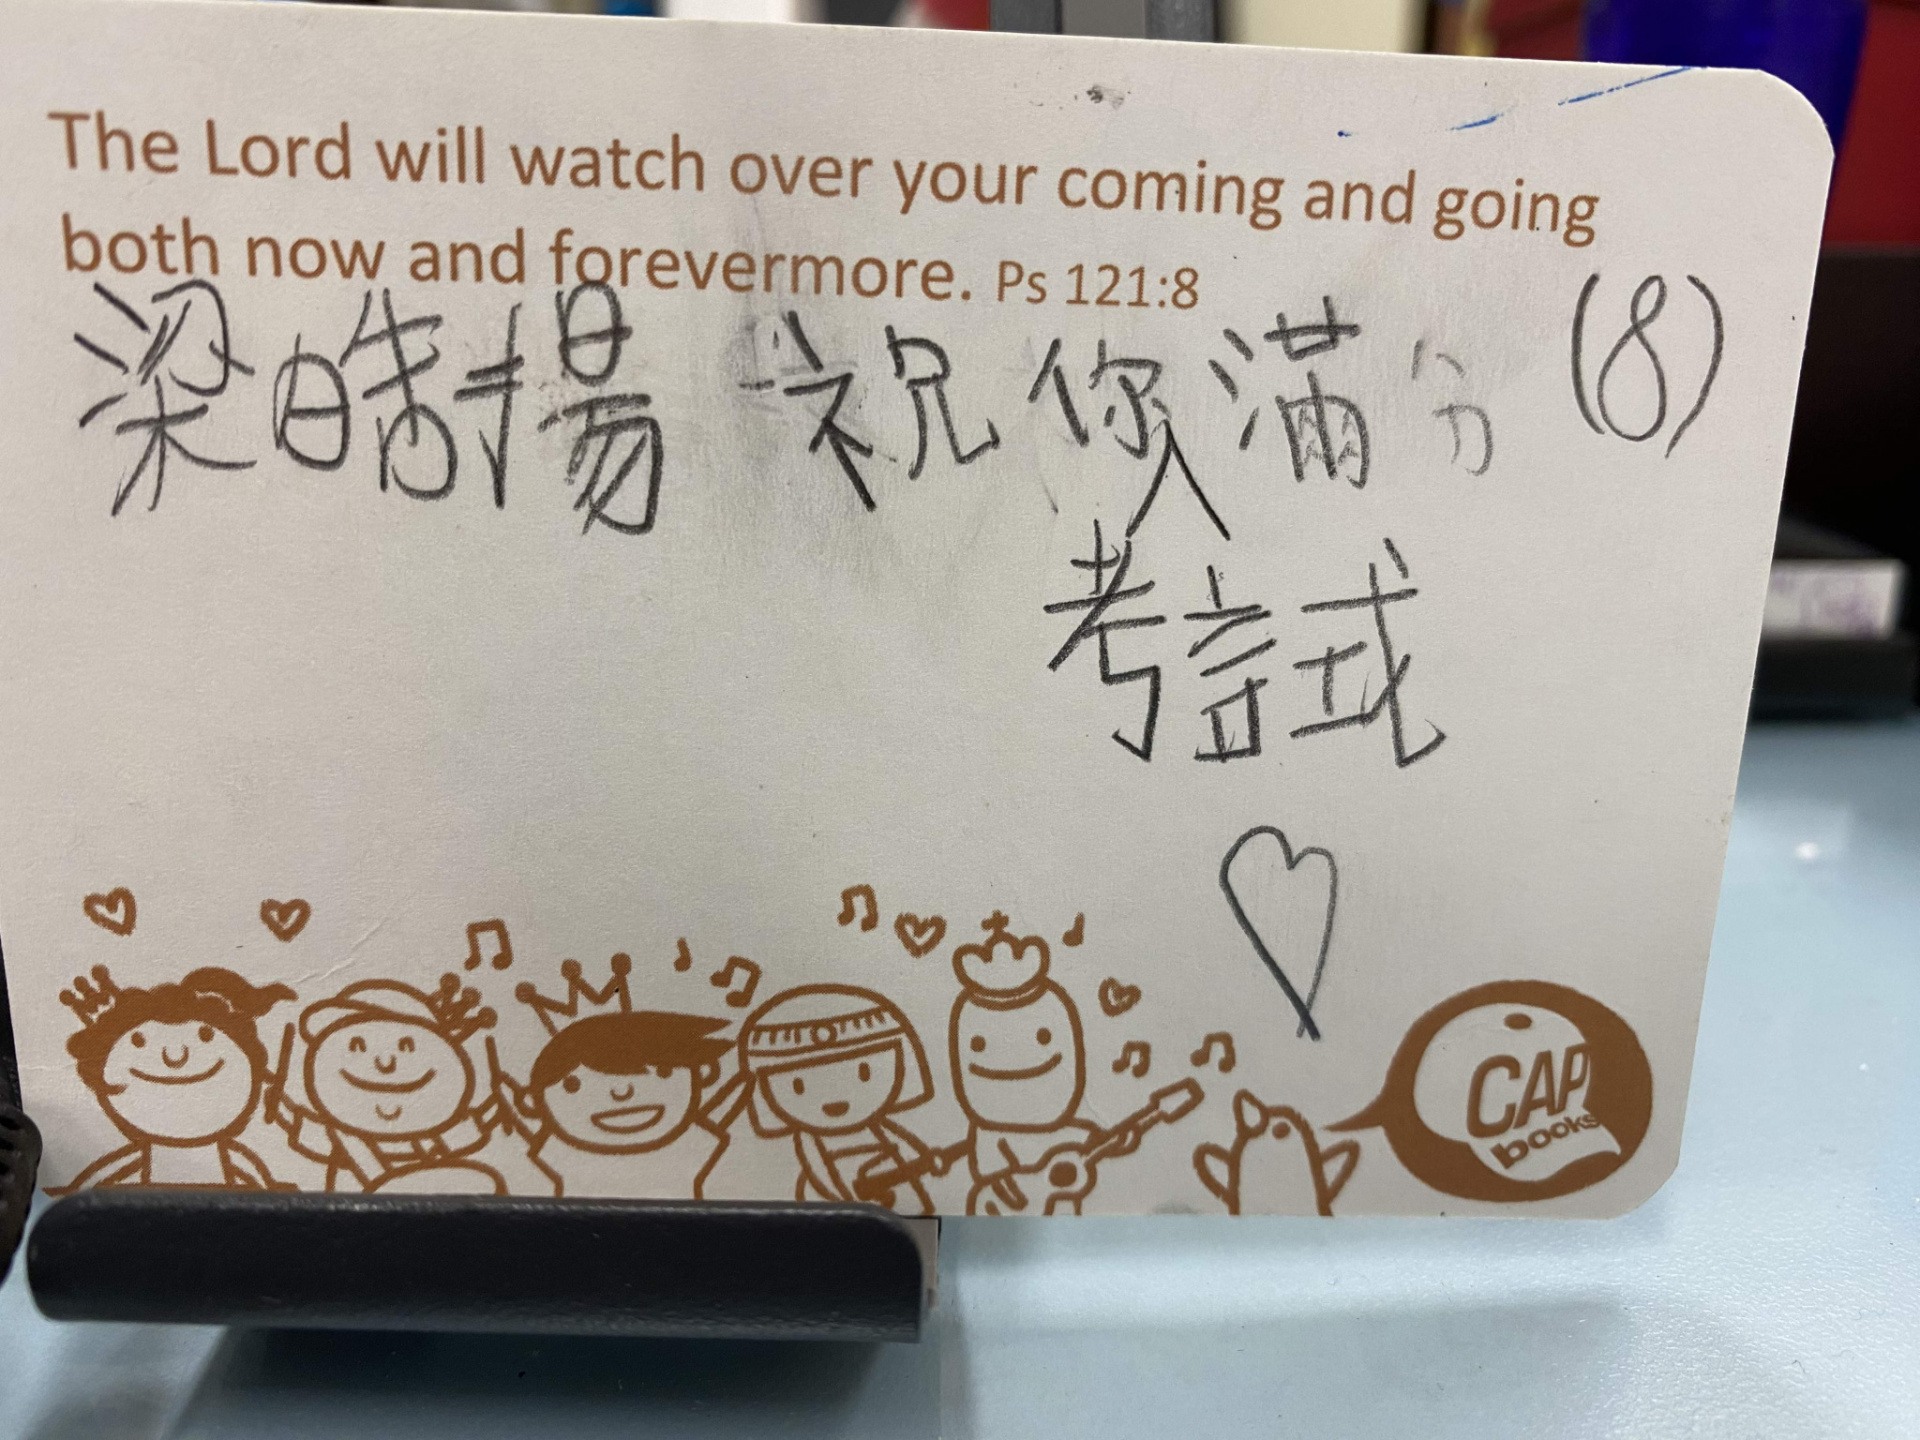 The Lord will watch over your coming and going
both now and forevermore. Ps 121:8
梁晧揚 祝你滿分 (8)
考試
CAP
books